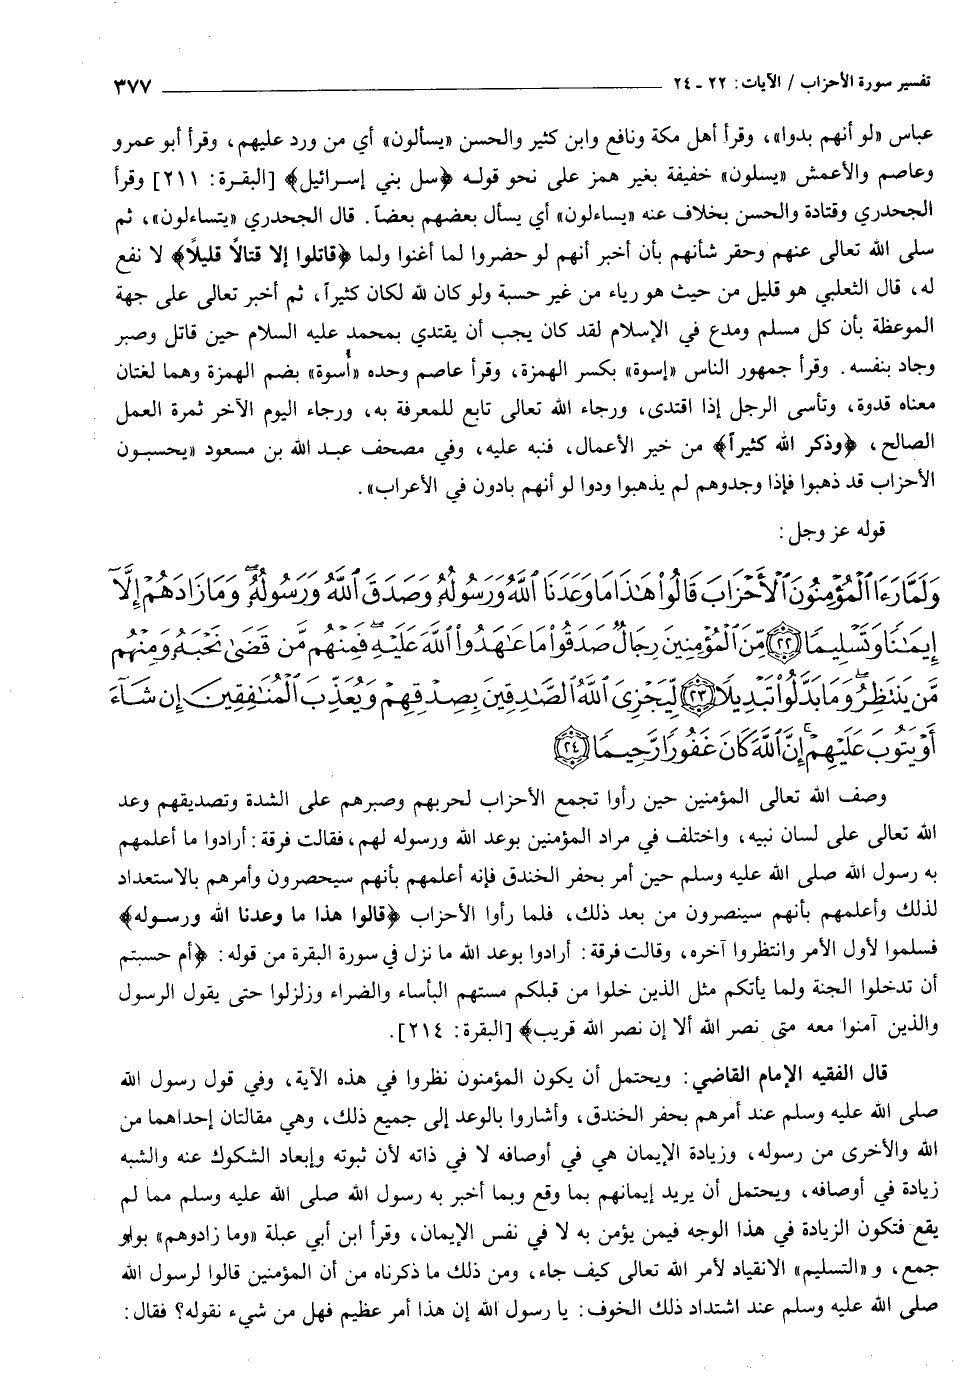 تفسير سورة الأحزاب / الآيات: ٢٢ - ٢٤ ٣٧٧
عباس «لو أنهم بدوا»، وقرأ أهل مكة ونافع وابن كثير والحسن «يسألون» أي من ورد عليهم، وقرأ أبو عمرو
وعاصم والأعمش «يسلون» خفيفة بغير همز على نحو قوله ﴿سل بني إسرائيل﴾ [البقرة: ٢١١] وقرأ
الجحدري وقتادة والحسن بخلاف عنه «يساءلون» أي يسأل بعضهم بعضاً. قال الجحدري «يتساءلون»، ثم
سلى الله تعالى عنهم وحقر شأنهم بأن أخبر أنهم لو حضروا لما أغنوا ولما ﴿قاتلوا إلا قتالاً قليلاً﴾ لا نفع
له، قال الثعلبي هو قليل من حيث هو رياء من غير حسبة ولو كان لله لكان كثيراً، ثم أخبر تعالى على جهة
الموعظة بأن كل مسلم ومدع في الإسلام لقد كان يجب أن يقتدي بمحمد عليه السلام حين قاتل وصبر
وجاد بنفسه. وقرأ جمهور الناس «إسوة» بكسر الهمزة، وقرأ عاصم وحده «أُسوة» بضم الهمزة وهما لغتان
معناه قدوة، وتأسى الرجل إذا اقتدى، ورجاء الله تعالى تابع للمعرفة به، ورجاء اليوم الآخر ثمرة العمل
الصالح، ﴿وذكر الله كثيراً﴾ من خير الأعمال، فنبه عليه، وفي مصحف عبد الله بن مسعود «يحسبون
الأحزاب قد ذهبوا فإذا وجدوهم لم يذهبوا ودوا لو أنهم بادون في الأعراب».
قوله عز وجل:
وَلَمَّا رَءَا ٱلْمُؤْمِنُونَ ٱلْأَحْزَابَ قَالُوا۟ هَٰذَا مَا وَعَدَنَا ٱللَّهُ وَرَسُولُهُۥ وَصَدَقَ ٱللَّهُ وَرَسُولُهُۥ ۚ وَمَا زَادَهُمْ إِلَّآ
إِيمَٰنًا وَتَسْلِيمًا ﴿٢٢﴾ مِّنَ ٱلْمُؤْمِنِينَ رِجَالٌ صَدَقُوا۟ مَا عَٰهَدُوا۟ ٱللَّهَ عَلَيْهِ ۖ فَمِنْهُم مَّن قَضَىٰ نَحْبَهُۥ وَمِنْهُم
مَّن يَنتَظِرُ ۖ وَمَا بَدَّلُوا۟ تَبْدِيلًا ﴿٢٣﴾ لِّيَجْزِىَ ٱللَّهُ ٱلصَّٰدِقِينَ بِصِدْقِهِمْ وَيُعَذِّبَ ٱلْمُنَٰفِقِينَ إِن شَآءَ
أَوْ يَتُوبَ عَلَيْهِمْ ۚ إِنَّ ٱللَّهَ كَانَ غَفُورًا رَّحِيمًا ﴿٢٤﴾
وصف الله تعالى المؤمنين حين رأوا تجمع الأحزاب لحربهم وصبرهم على الشدة وتصديقهم وعد
الله تعالى على لسان نبيه، واختلف في مراد المؤمنين بوعد الله ورسوله لهم، فقالت فرقة: أرادوا ما أعلمهم
به رسول الله صلى الله عليه وسلم حين أمر بحفر الخندق فإنه أعلمهم بأنهم سيحصرون وأمرهم بالاستعداد
لذلك وأعلمهم بأنهم سينصرون من بعد ذلك، فلما رأوا الأحزاب ﴿قالوا هذا ما وعدنا الله ورسوله﴾
فسلموا لأول الأمر وانتظروا آخره، وقالت فرقة: أرادوا بوعد الله ما نزل في سورة البقرة من قوله: ﴿أم حسبتم
أن تدخلوا الجنة ولما يأتكم مثل الذين خلوا من قبلكم مستهم البأساء والضراء وزلزلوا حتى يقول الرسول
والذين آمنوا معه متى نصر الله ألا إن نصر الله قريب﴾ [البقرة: ٢١٤].
قال الفقيه الإمام القاضي: ويحتمل أن يكون المؤمنون نظروا في هذه الآية، وفي قول رسول الله
صلى الله عليه وسلم عند أمرهم بحفر الخندق، وأشاروا بالوعد إلى جميع ذلك، وهي مقالتان إحداهما من
الله والأخرى من رسوله، وزيادة الإيمان هي في أوصافه لا في ذاته لأن ثبوته وإبعاد الشكوك عنه والشبه
زيادة في أوصافه، ويحتمل أن يريد إيمانهم بما وقع وبما أخبر به رسول الله صلى الله عليه وسلم مما لم
يقع فتكون الزيادة في هذا الوجه فيمن يؤمن به لا في نفس الإيمان، وقرأ ابن أبي عبلة «وما زادوهم» بواو
جمع، و «التسليم» الانقياد لأمر الله تعالى كيف جاء، ومن ذلك ما ذكرناه من أن المؤمنين قالوا لرسول الله
صلى الله عليه وسلم عند اشتداد ذلك الخوف: يا رسول الله إن هذا أمر عظيم فهل من شيء نقوله؟ فقال: